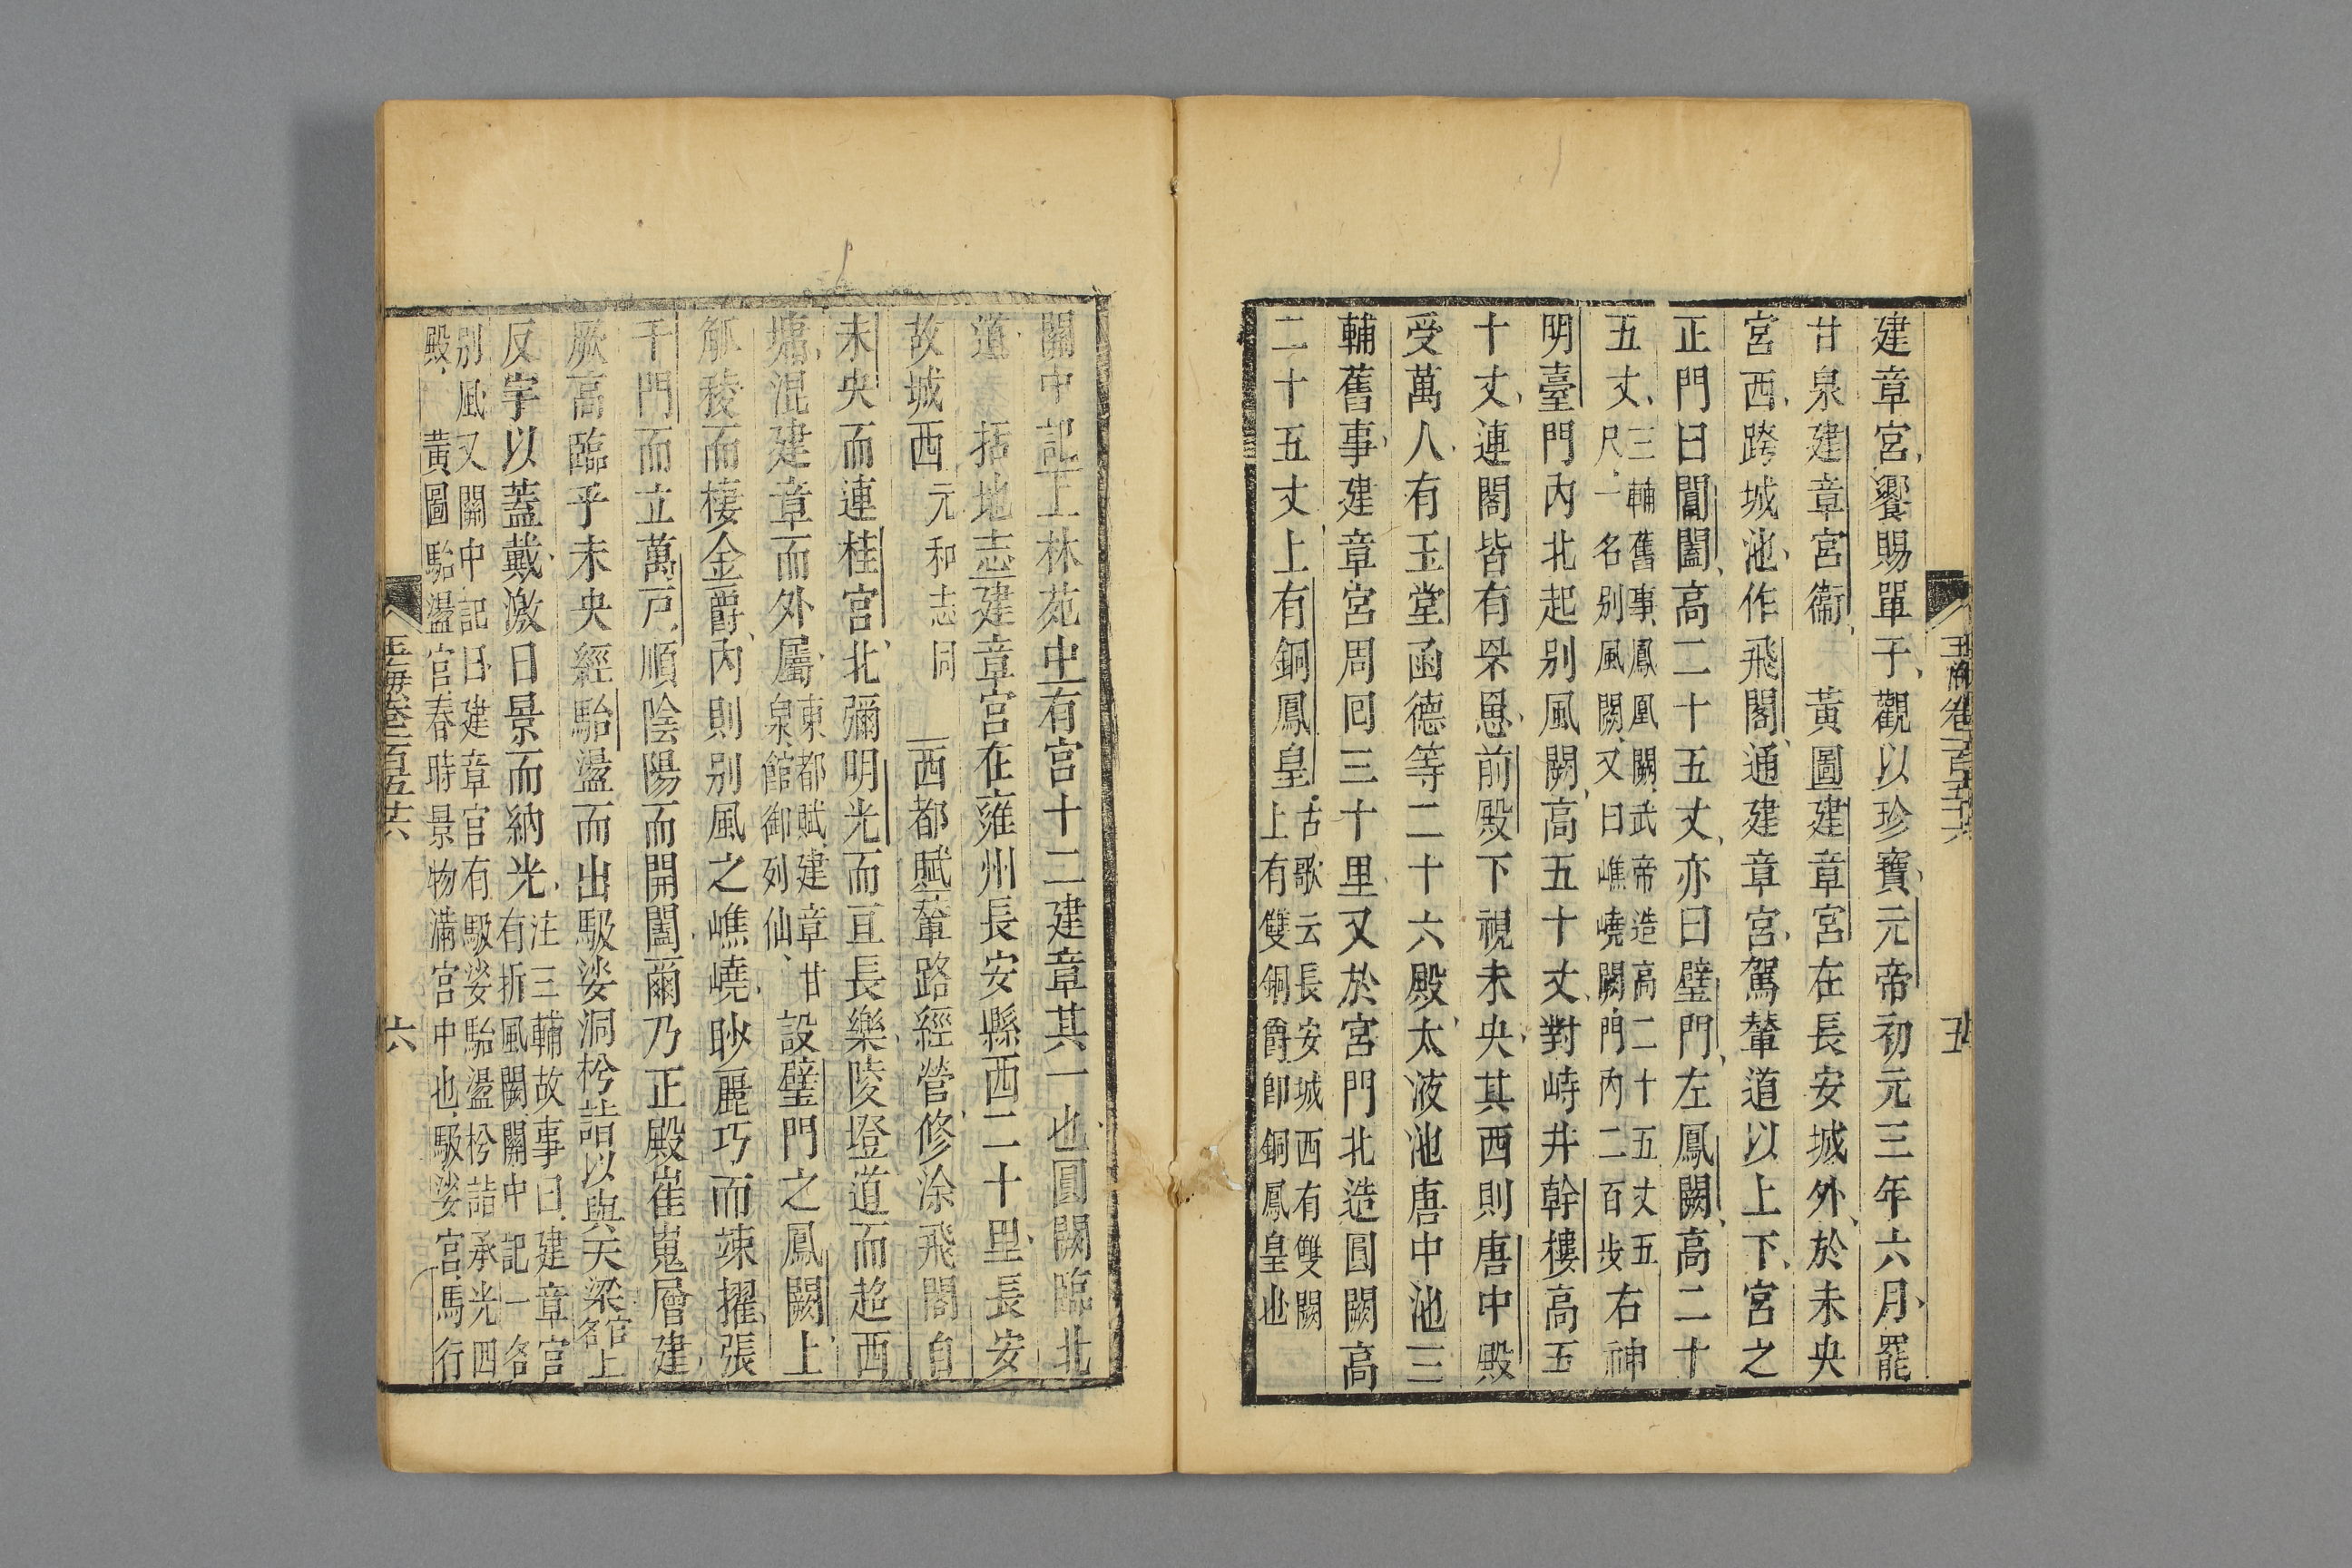 玉海卷一百五十六
五
建章宮饗賜單于觀以珍寶元帝初元三年六月罷
甘泉建章宮衞 黃圖建章宮在長安城外於未央
宮西跨城池作飛閣通建章宮駕輦道以上下宮之
正門曰閶闔高二十五丈亦曰璧門左鳳闕高二十
五丈三輔舊事鳳凰闕武帝造高二十五丈五
尺一名别風闕又曰嶕嶢闕門内二百步右神
明臺門内北起别風闕高五十丈對峙井幹樓高五
十丈連閣皆有罘罳前殿下視未央其西則唐中殿
受萬人有玉堂函德等二十六殿太液池唐中池三
輔舊事建章宮周回三十里又於宮門北造圓闕高
二十五丈上有銅鳳皇古歌云長安城西有雙闕
上有雙銅爵即銅鳳皇也
關中記上林苑中有宮十二建章其一也圓闕臨北
道 括地志建章宮在雍州長安縣西二十里長安
故城西元和志同 西都賦輦路經營修涂飛閣自
未央而連桂宮北彌明光而亘長樂陵墱道而超西
墉混建章而外屬東都賦建章甘
泉館御列仙設璧門之鳳闕上
觚稜而棲金爵内則别風之嶕嶢眇麗巧而竦擢張
千門而立萬戸順陰陽而開闔爾乃正殿崔嵬層建
厥高臨乎未央經駘盪而出馺娑洞枍詣以與天梁宮名上
反宇以蓋戴激日景而納光注三輔故事曰建章宮
有折風闕關中記一名
别風又關中記曰建章宮有馺娑駘盪枍詣承光四
殿 黃圖駘盪宮春時景物滿宮中也馺娑宮馬行
玉海卷一百五十六
六